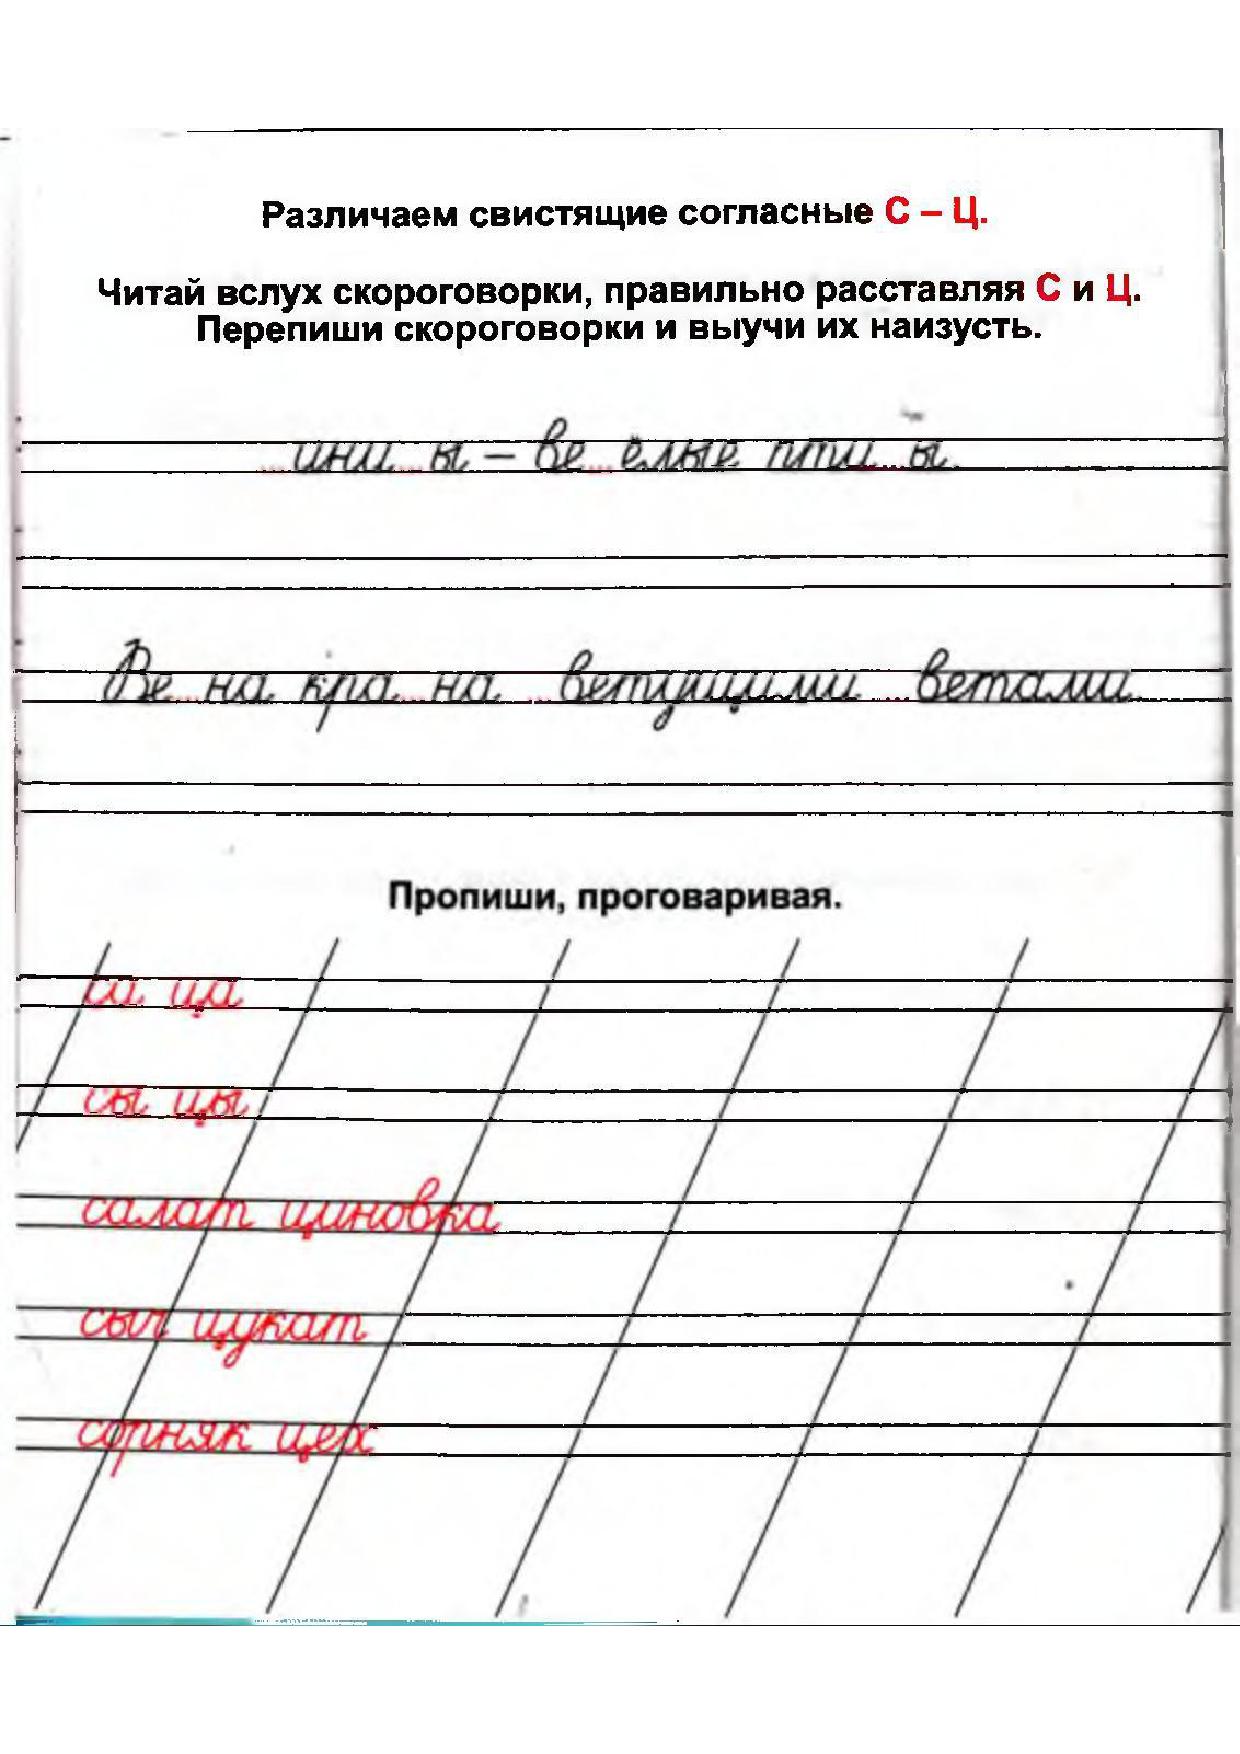 Различаем свистящие согласные С – Ц.
Читай вслух скороговорки, правильно расставляя С и Ц.
Перепиши скороговорки и выучи их наизусть.
...ини...ы – ве...ёлые пти...ы.
Ве...на кра...на ...ветущими ...ветами.
Пропиши, проговаривая.
са ца
сы цы
салат циновка
сыч цукат
сорняк цех